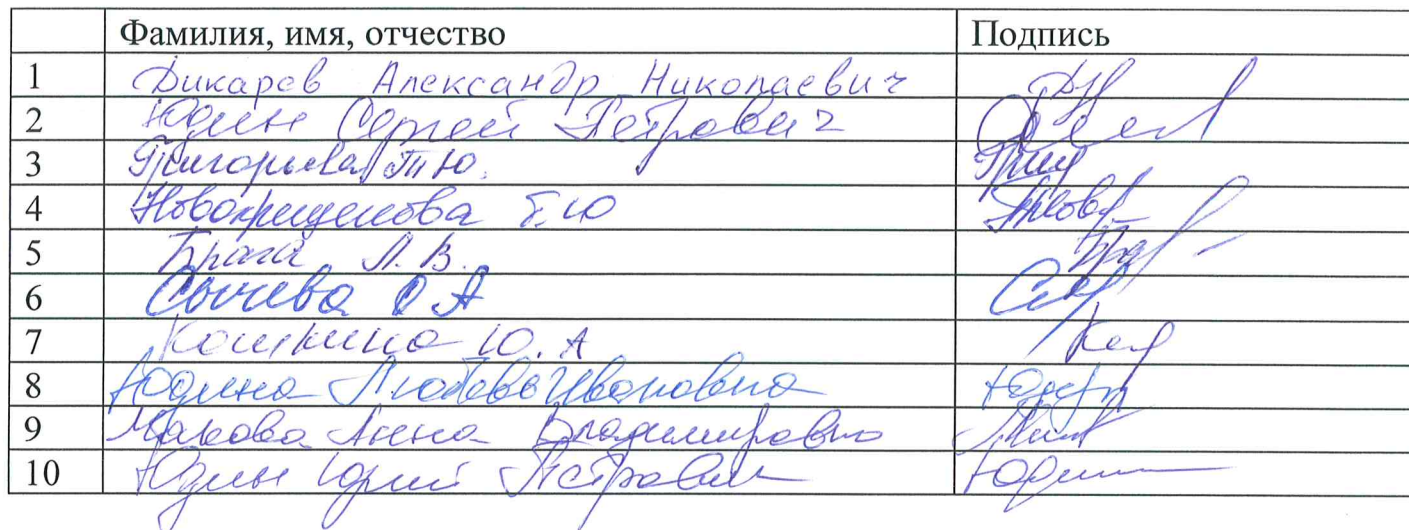 Фамилия, имя, отчество Подпись
1 Дикарев Александр Николаевич
2 Юдин Сергей Петрович
3 Григорьева Т.Ю.
4 Новокрещенова Т.Ю
5 Брага Л.В.
6 Сычева О А
7 Кошкина Ю.А
8 Юдина Любовь Ивановна
9 Макова Анна Владимировна
10 Юдин Юрий Петрович Юдин